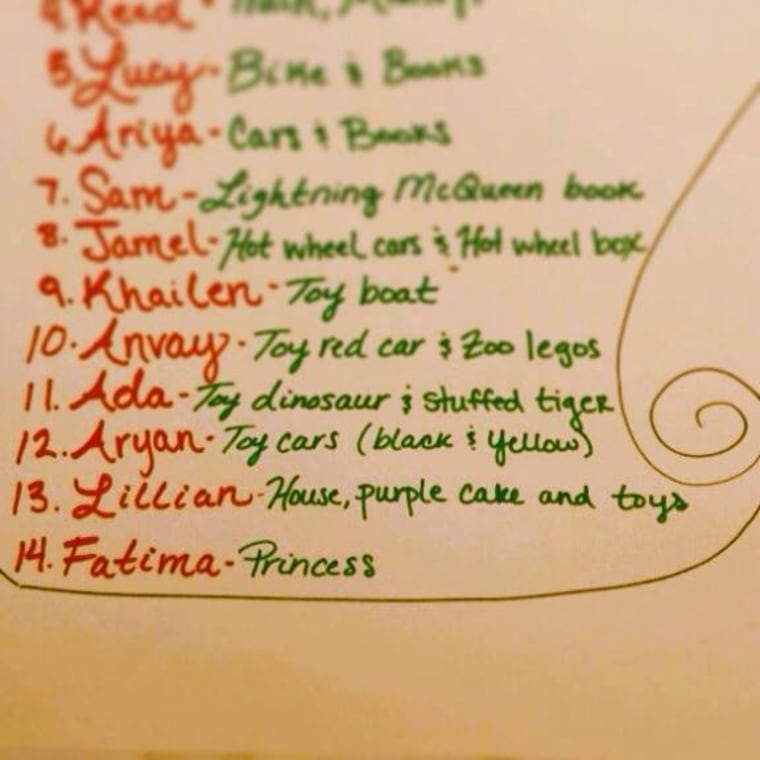 5. Lucy - Bike & Books
6. Ariya - Cars & Books
7. Sam - Lightning McQueen book
8. Jamel - Hot wheel cars & Hot wheel box
9. Khailen - Toy boat
10. Anvay - Toy red car & Zoo legos
11. Ada - Toy dinosaur & stuffed tiger
12. Aryan - Toy cars (black & yellow)
13. Lillian - House, purple cake and toys
14. Fatima - Princess